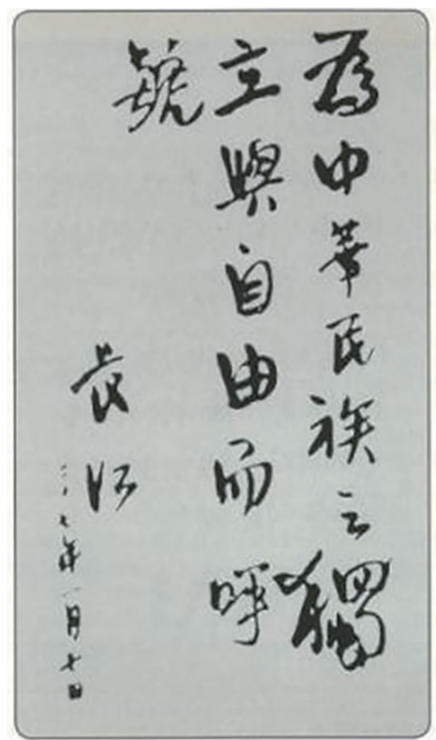 為中華民族之獨
立與自由而呼
號
長江
二七年一月七日